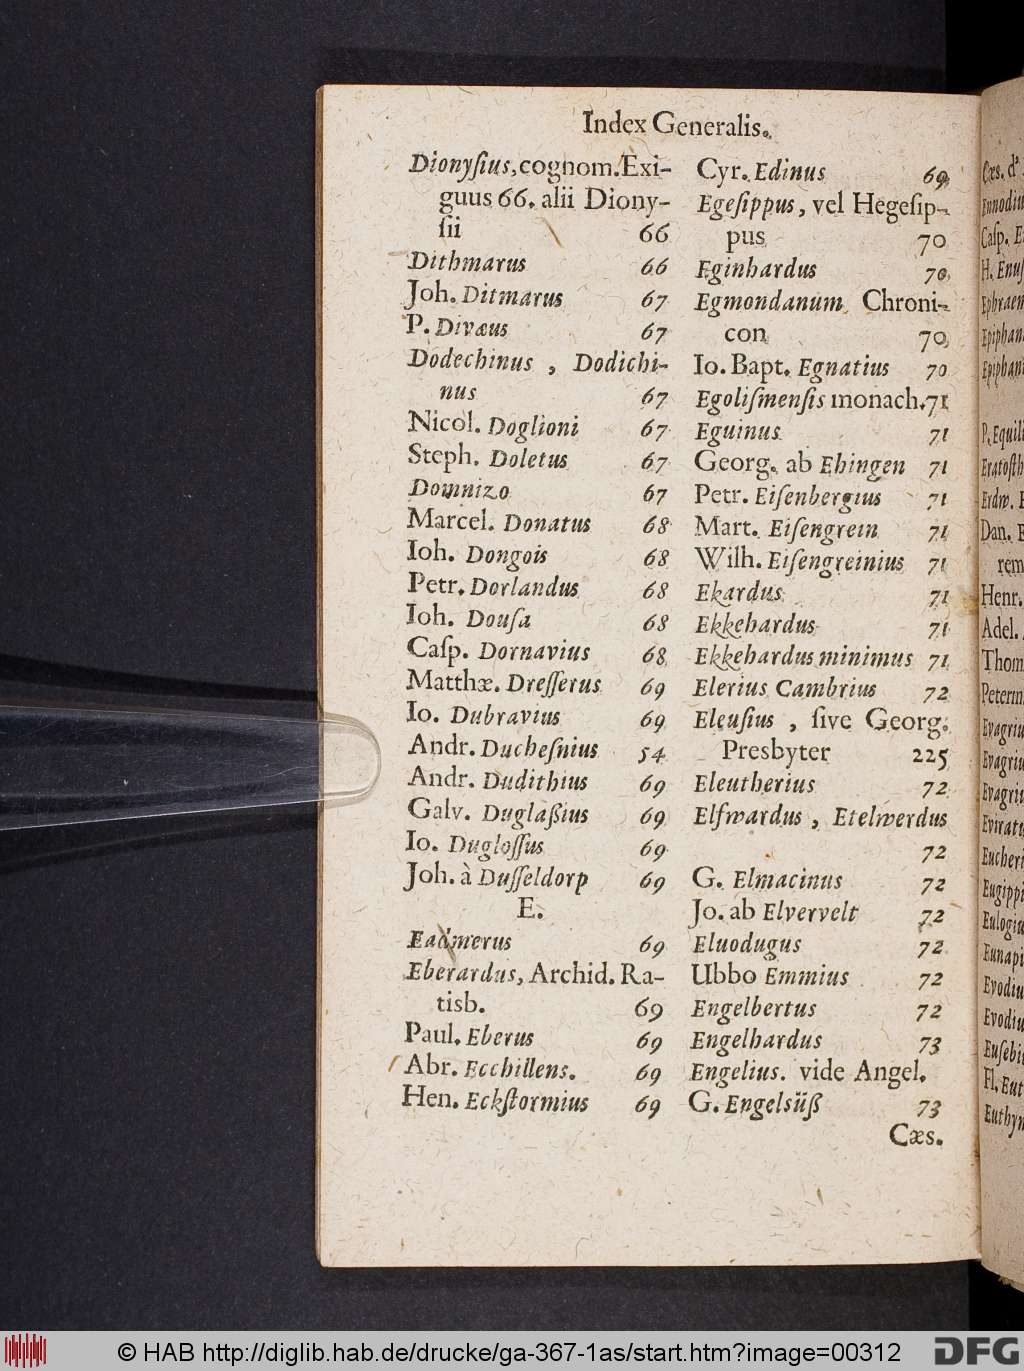 Index Generalis.
Dionyſius, cognom. Exi-
guus 66. alii Diony-
ſii 66
Dithmarus 66
Joh. Ditmarus 67
P. Divæus 67
Dodechinus , Dodichi-
nus 67
Nicol. Doglioni 67
Steph. Doletus 67
Domnizo 67
Marcel. Donatus 68
Ioh. Dongois 68
Petr. Dorlandus 68
Ioh. Douſa 68
Caſp. Dornavius 68
Matthæ. Dreſſerus 69
Io. Dubravius 69
Andr. Ducheſnius 54
Andr. Dudithius 69
Galv. Duglaßius 69
Io. Dugloſſus 69
Joh. à Duſſeldorp 69
E.
Eadmerus 69
Eberardus, Archid. Ra-
tisb. 69
Paul. Eberus 69
Abr. Ecchillens. 69
Hen. Eckſtormius 69
Cyr. Edinus 69
Egeſippus, vel Hegeſip-
pus 70
Eginhardus 70
Egmondanum Chroni-
con 70
Io. Bapt. Egnatius 70
Egoliſmenſis monach. 71
Eguinus 71
Georg. ab Ehingen 71
Petr. Eiſenbergius 71
Mart. Eiſengrein 71
Wilh. Eiſengreinius 71
Ekardus 71
Ekkehardus 71
Ekkehardus minimus 71
Elerius Cambrius 72
Eleuſius , ſive Georg.
Presbyter 225
Eleutherius 72
Elfwardus , Etelwerdus
72
G. Elmacinus 72
Jo. ab Elvervelt 72
Eluodugus 72
Ubbo Emmius 72
Engelbertus 72
Engelhardus 73
Engelius. vide Angel.
G. Engelsüß 73
Cæs.
Cæs. d'
Caſp.
P.
Dan.
rem
Henr.
Adel.
Thom
Fl.
© HAB http://diglib.hab.de/drucke/ga-367-1as/start.htm?image=00312
DFG